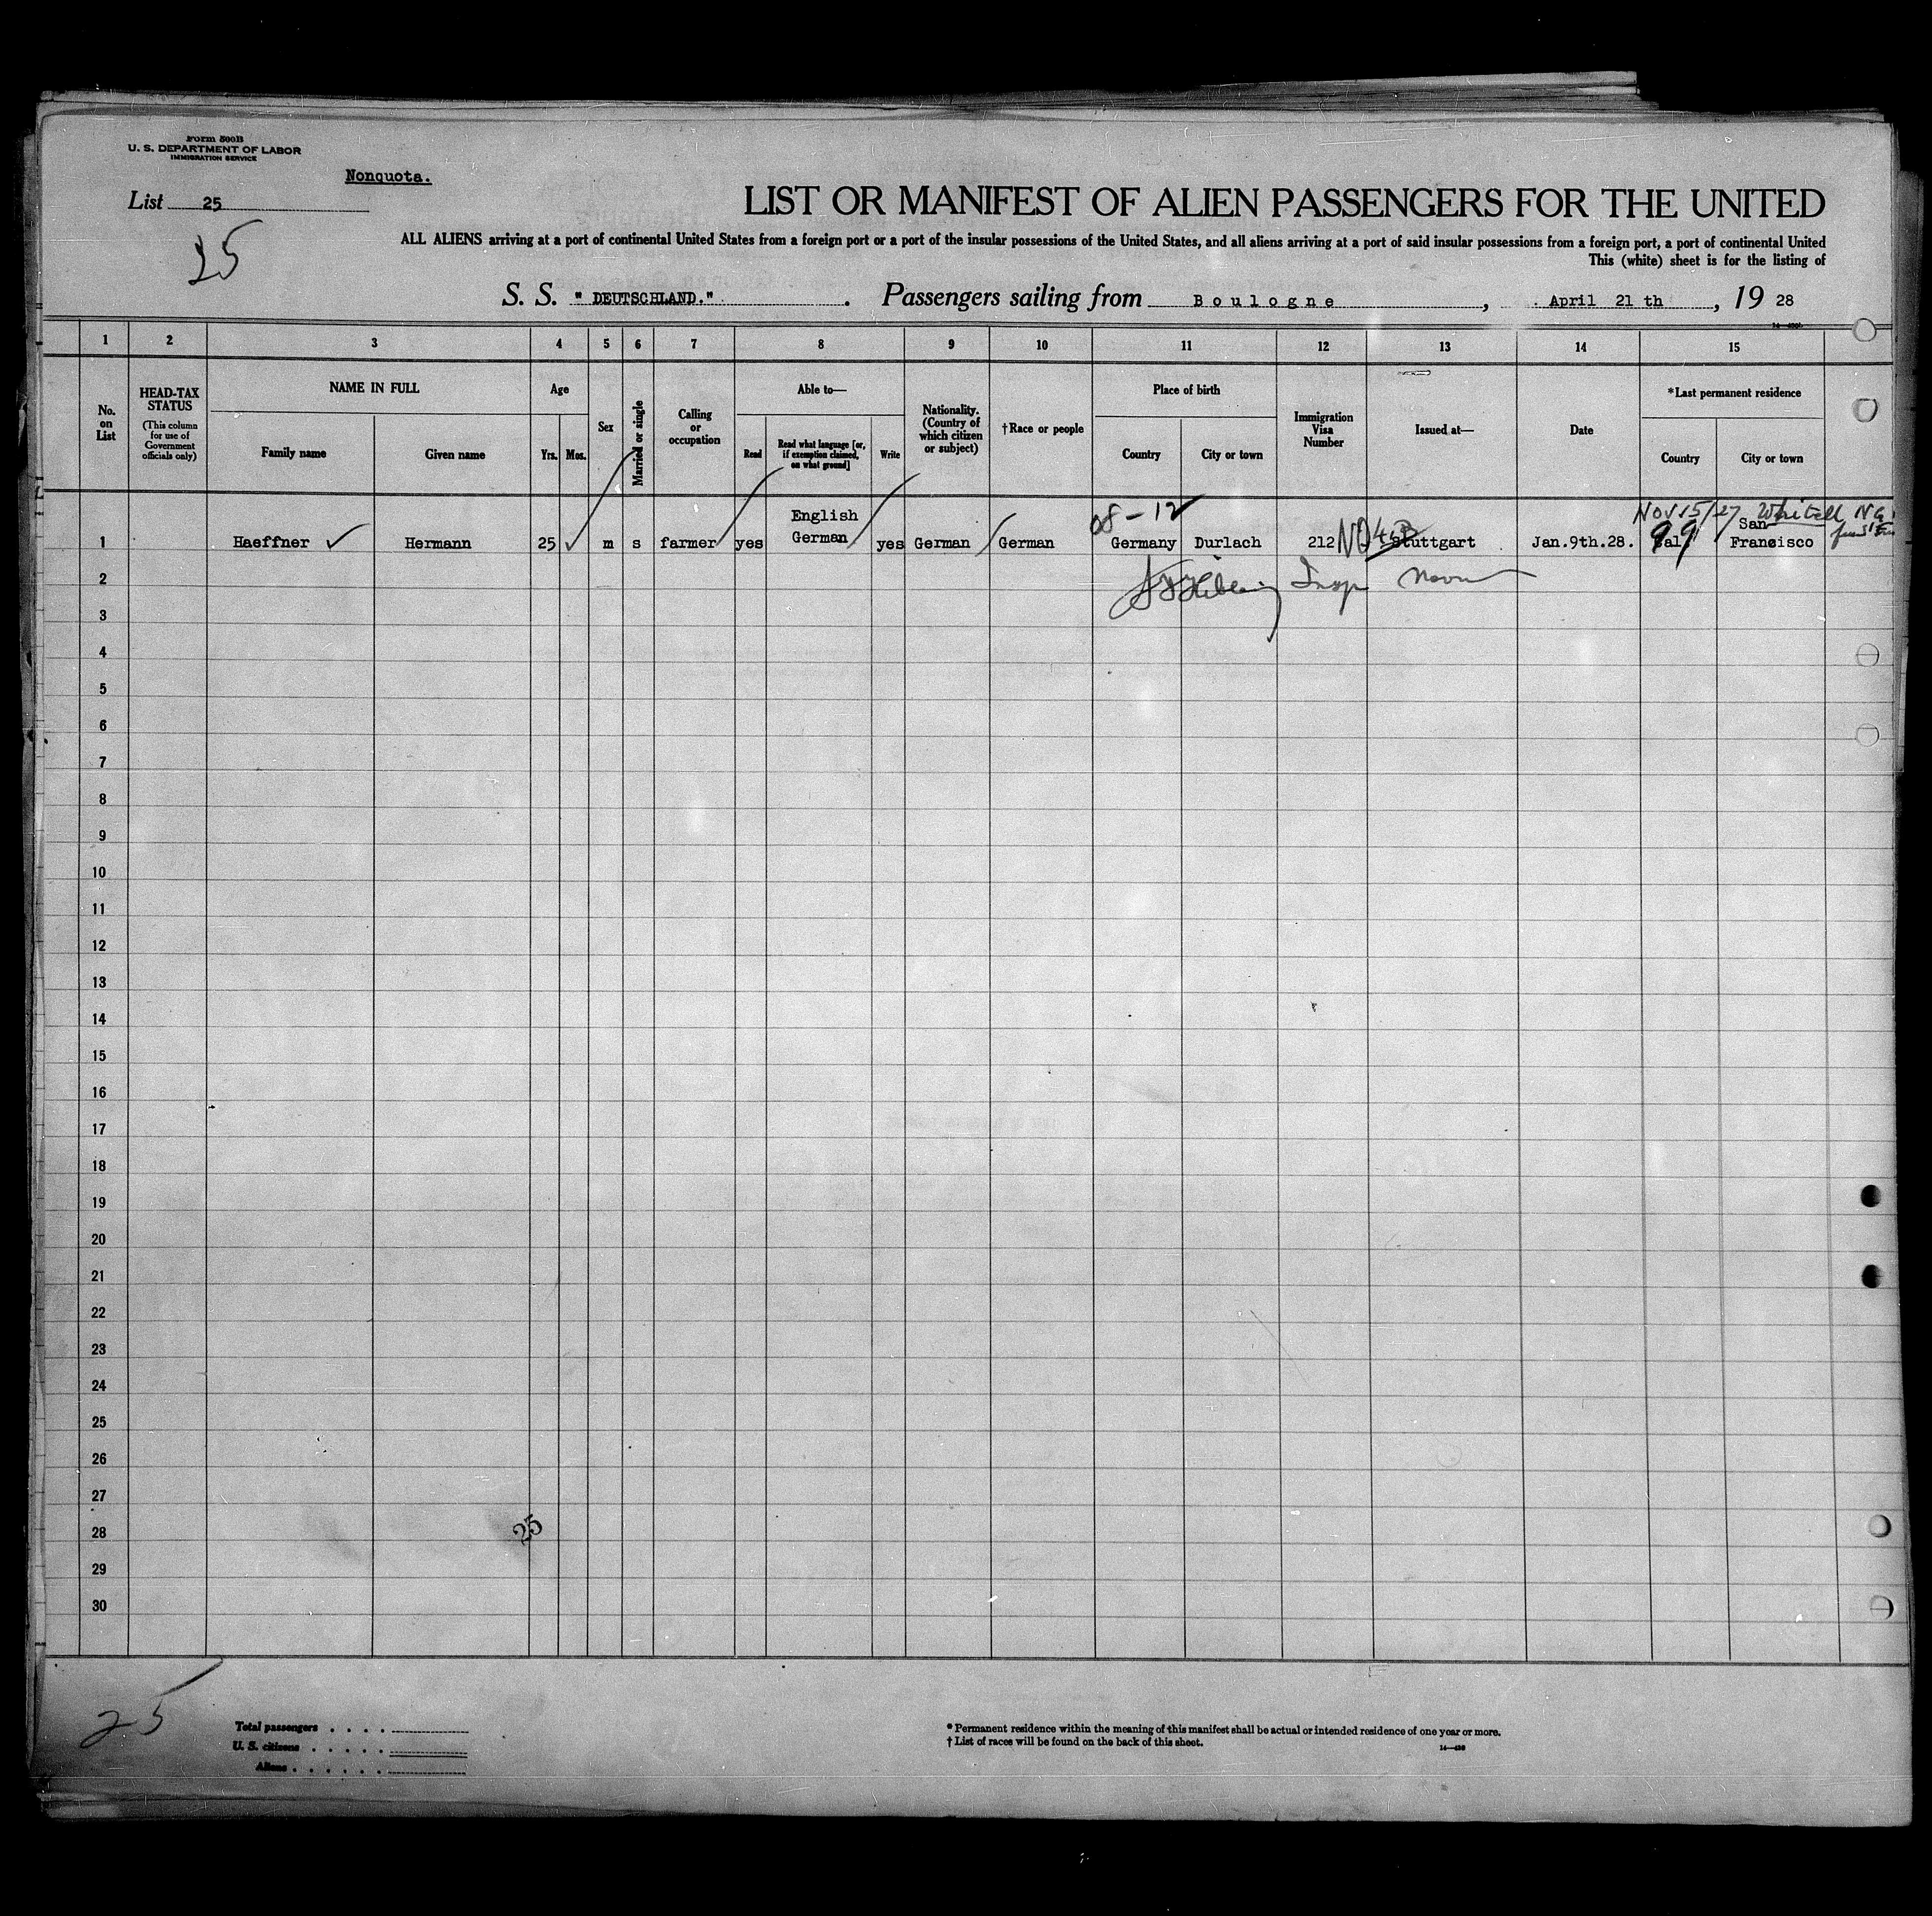 Form 500B
U. S. DEPARTMENT OF LABOR
IMMIGRATION SERVICE
Nonquota.
List 25
25
LIST OR MANIFEST OF ALIEN PASSENGERS FOR THE UNITED
ALL ALIENS arriving at a port of continental United States from a foreign port or a port of the insular possessions of the United States, and all aliens arriving at a port of said insular possessions from a foreign port, a port of continental United
This (white) sheet is for the listing of
S. S. " DEUTSCHLAND." . Passengers sailing from Boulogne , April 21 th , 19 28
1 2 3 4 5 6 7 8 9 10 11 12 13 14 15
No. on List
HEAD-TAX STATUS
(This column for use of Government officials only)
NAME IN FULL
Family name Given name
Age
Yrs. Mos.
Sex
Married or single
Calling or occupation
Able to—
Read
Read what language [or, if exemption claimed, on what ground]
Write
Nationality. (Country of which citizen or subject)
†Race or people
Place of birth
Country City or town
Immigration Visa Number
Issued at—
Date
*Last permanent residence
Country City or town
08-12 Nov 15/27
English San
1 Haeffner Hermann 25 m s farmer yes German yes German German Germany Durlach 212 NQ Stuttgart Jan.9th.28. 99 Francisco
Insp
2
3
4
5
6
7
8
9
10
11
12
13
14
15
16
17
18
19
20
21
22
23
24
25
26
27
28
25
29
30
25
Total passengers . . . .
U. S. citizens . . . . .
Aliens . . . . . .
* Permanent residence within the meaning of this manifest shall be actual or intended residence of one year or more.
† List of races will be found on the back of this sheet.